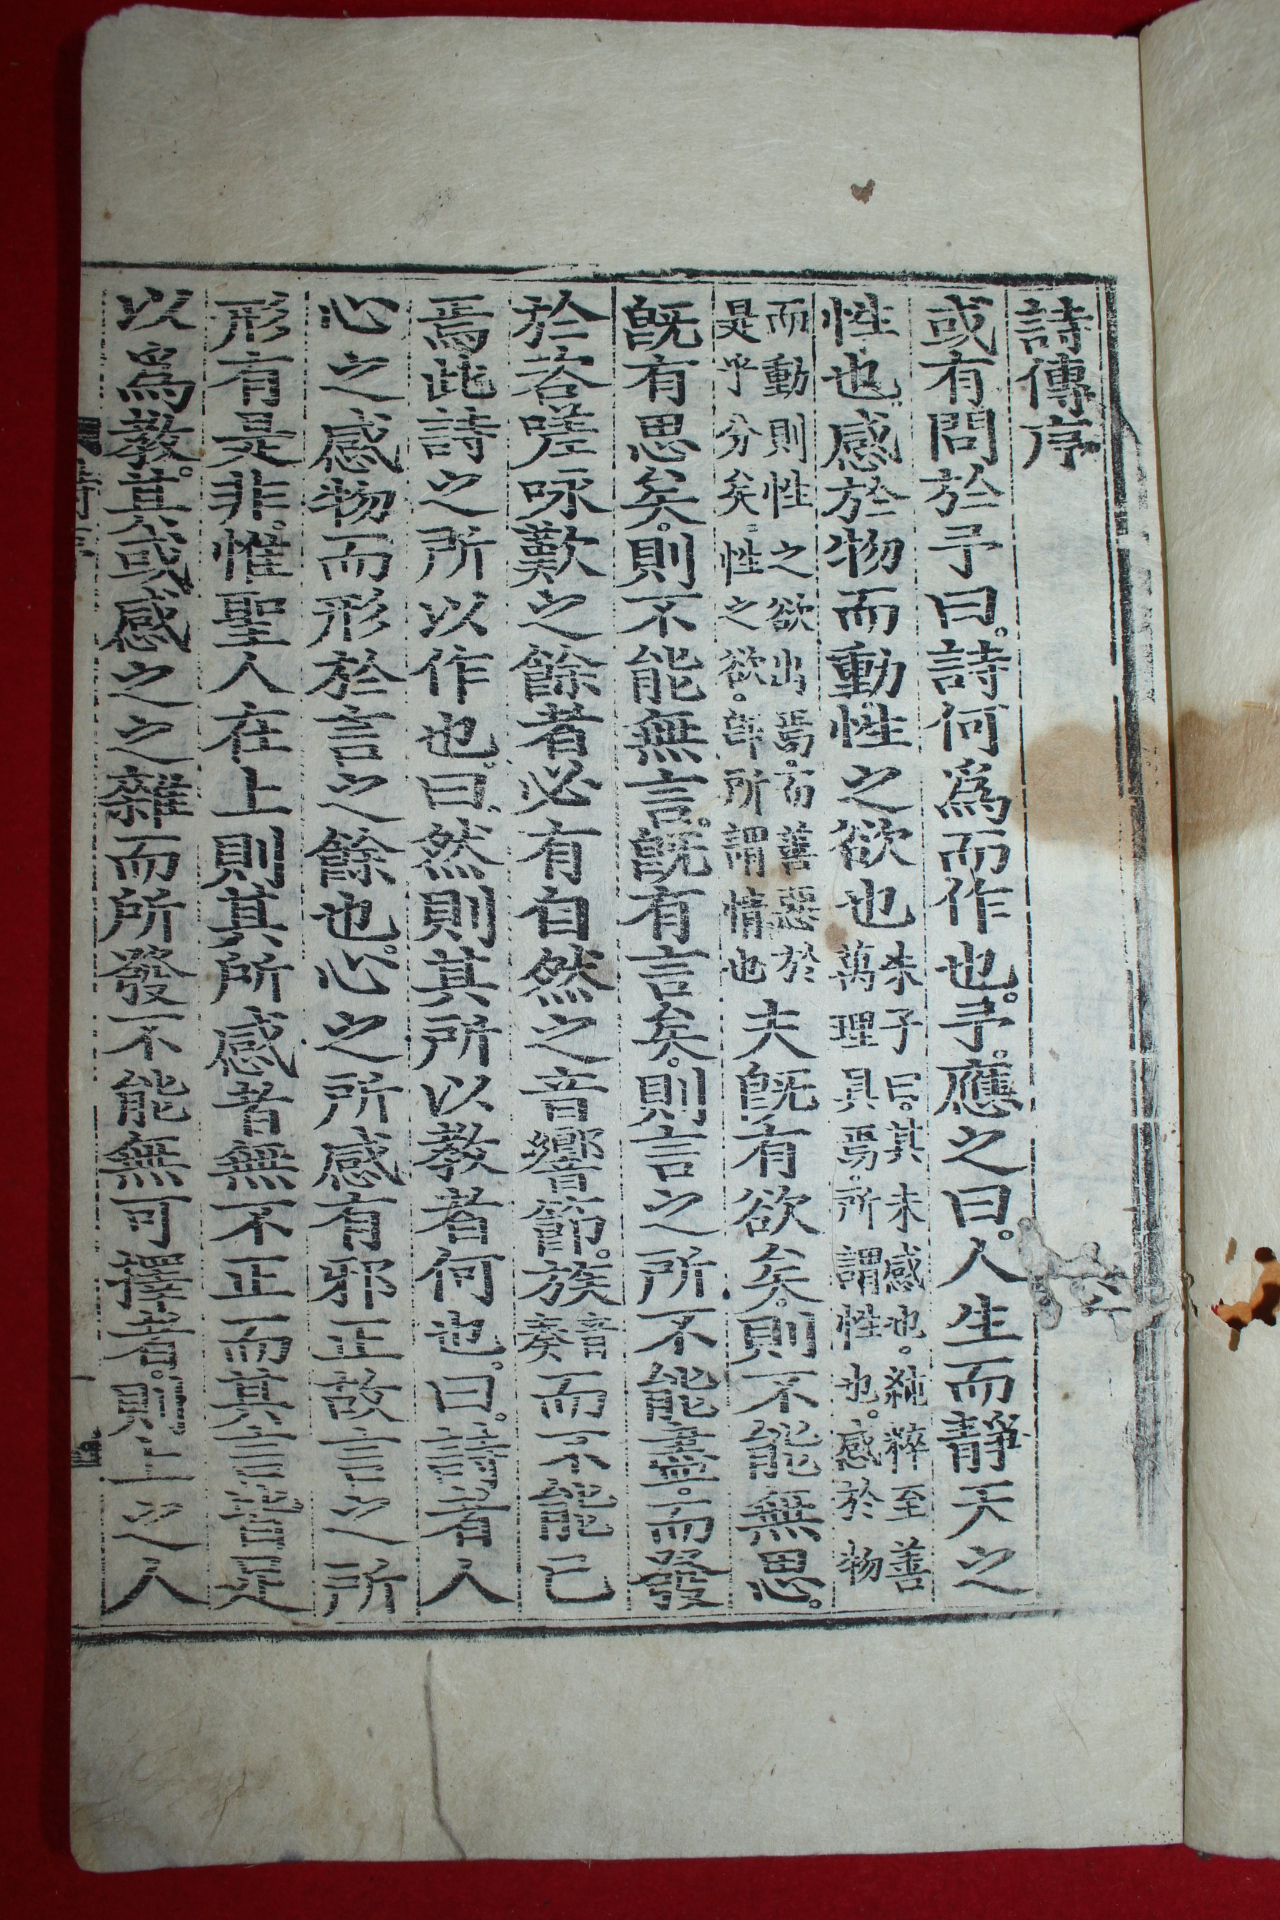 詩傳序
或有問於予曰。詩何爲而作也。予應之曰。人生而靜天之
性也。感於物而動。性之欲也朱子曰。其未感也。純粹至善
萬理具焉。所謂性也。感於物
而動則性之欲出焉。而善惡於
是乎分矣。性之欲。卽所謂情也夫旣有欲矣。則不能無思。
旣有思矣。則不能無言。旣有言矣。則言之所不能盡。而發
於咨嗟咏歎之餘者必有自然之音響節。族音
奏而不能已
焉此詩之所以作也。曰。然則其所以敎者何也。曰。詩者人
心之感物而形於言之餘也。心之所感有邪正故言之所
形有是非。惟聖人在上則其所感者無不正而其言皆足
以爲敎。其或感之之雜而所發不能無可擇者。則上之人